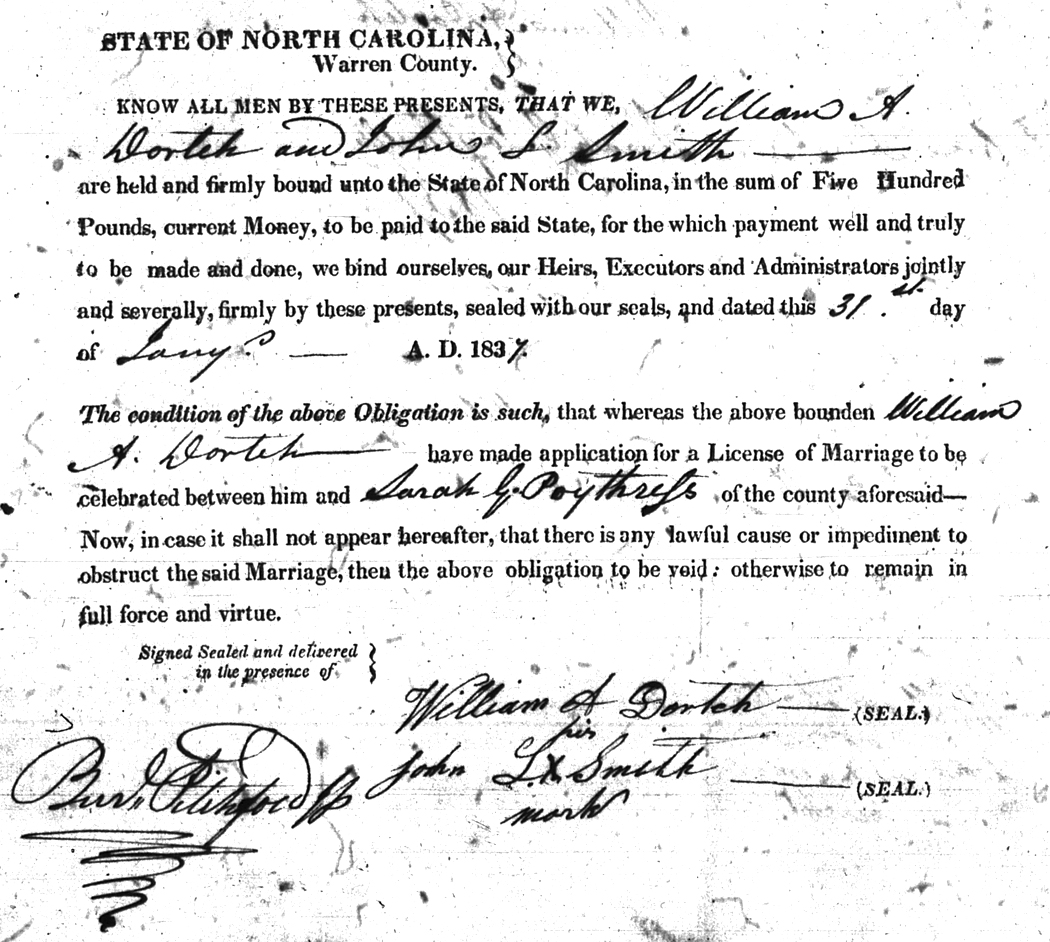 STATE OF NORTH CAROLINA,
Warren County.
KNOW ALL MEN BY THESE PRESENTS, THAT WE, William A.
Dortch and John L. Smith
are held and firmly bound unto the State of North Carolina, in the sum of Five Hundred
Pounds, current Money, to be paid to the said State, for the which payment well and truly
to be made and done, we bind ourselves, our Heirs, Executors and Administrators jointly
and severally, firmly by these presents, sealed with our seals, and dated this 31.st day
of Jany. A. D. 1837.
The condition of the above Obligation is such, that whereas the above bounden William
A. Dortch have made application for a License of Marriage to be
celebrated between him and Sarah G. Poythress of the county aforesaid—
Now, in case it shall not appear hereafter, that there is any lawful cause or impediment to
obstruct the said Marriage, then the above obligation to be void: otherwise to remain in
full force and virtue.
Signed Sealed and delivered
in the presence of
William A Dortch (SEAL.)
his
John L. X Smith (SEAL.)
mark